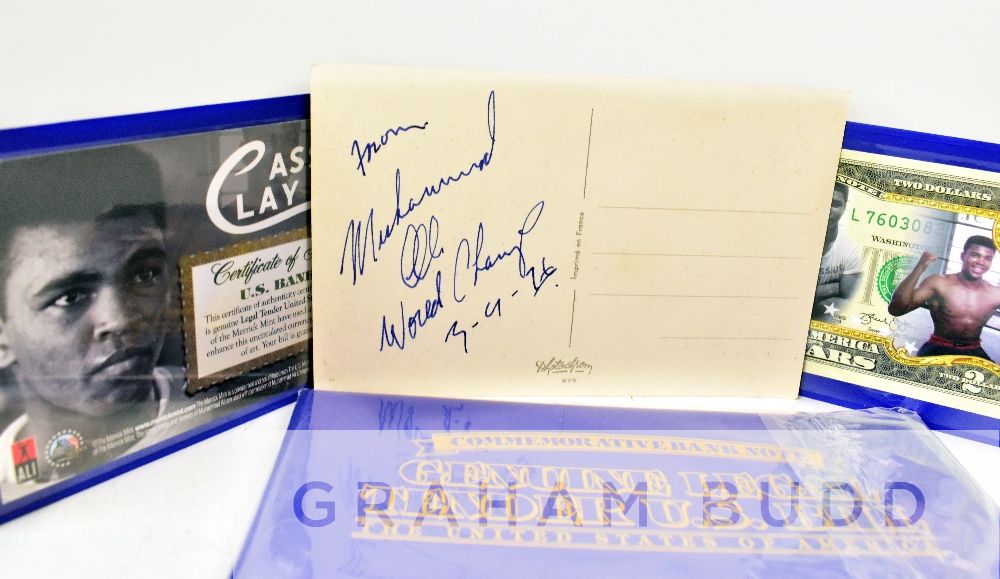 CASS
CLAY
Certificate of
U.S. BANK
This certificate of authenticity
is genuine Legal Tender United
of the Merrick Mint have used
enhance this uncirculated
of art. Your bill is
©The Merrick Mint. www.merrickmint.com The Merrick Mint
X
ALI
From
Muhammad
Ali
World Champ
3-4-76
Imprimé en France
Photochrom
TWO DOLLARS
L 7603083
WASHINGTON
AMERICA
ARS
TWO DOLLARS
2
COMMEMORATIVE BANK NOTE
GENUINE LEGAL
TENDER U.S.
THE UNITED STATES OF AMERICA
GRAHAM BUDD